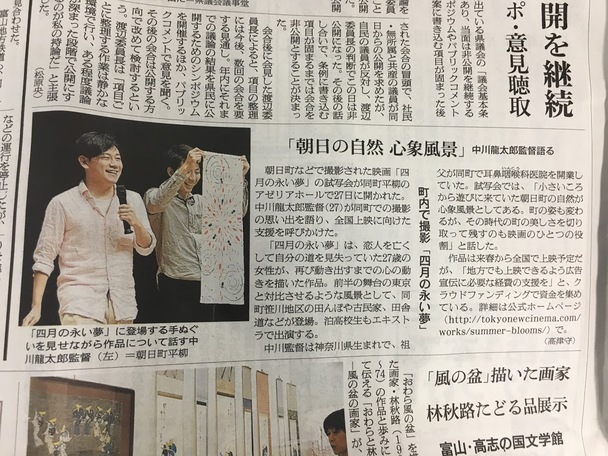 開を継続
ポ・意見聴取
出ている県議会の「議会基本条
あり、当面は非公開を継続する
ポジウムやパブリックコメント
案に書き込む項目が固まった後
された会合の冒頭で、社民
・無所属と共産の議員が同
日からの公開を求めたが、
自民の議員が反対し、渡辺
委員長の判断でこの日は非
公開になった。その後の話
し合いで、条例に書き込む
項目が固まるまでは会合を
非公開とすることが決まっ
た。
会合後に会見した渡辺委
員長によると、項目の整理
には今後、数回の会合を要
する見通し。年内にそれま
での議論の結果を県民に公
開するためのシンポジウム
を開催するほか、パブリッ
クコメントで意見を聞く。
その後の会合は公開する方
向で改めて検討するとい
う。渡辺委員長は「項目ご
とに整理する作業は静かな
環境で行い、ある程度議論
が深まった段階で公開にす
るのが私の持論だ」と主張
（松原央）
県議会議事堂
「朝日の自然 心象風景」中川龍太郎監督語る
町内で撮影「四月の永い夢」
朝日町などで撮影された映画「四
月の永い夢」の試写会が同町平柳の
アゼリアホールで27日に開かれた。
中川龍太郎監督(27)が同町での撮影
の思い出を語り、全国上映に向けた
支援を呼びかけた。
「四月の永い夢」は、恋人を亡くし
て自分の道を見失っていた27歳の
女性が、再び動き出すまでの心の動
きを描いた作品。前半の舞台の東京
と対比させるような風景として、同
町笹川地区の田んぼや古民家、田舎
道などが登場。泊高校生もエキスト
ラで出演する。
中川監督は神奈川県生まれで、祖
父が同町で耳鼻咽喉科医院を開業し
ていた。試写会では、「小さいころ
から遊びに来ていた朝日町の自然が
心象風景としてある。町の姿も変わ
るが、その時代の町の美しさを切り
取って残すのも映画のひとつの役
割」と話した。
作品は来春から全国で上映予定だ
が、「地方でも上映できるよう広告
宣伝に必要な経費の支援を」と、ク
ラウドファンディングで資金を集め
ている。詳細は公式ホームページ
(http://tokyonewcinema.com/
works/summer-blooms/)で。
（高津守）
「四月の永い夢」に登場する手ぬぐ
いを見せながら作品について話す中
川龍太郎監督（左）＝朝日町平柳
「風の盆」描いた画家
林秋路たどる品展示
富山・高志の国文学館
「おわら風の盆」を
た画家・林秋路（19
～74）の作品と歩みに
て伝える「おわらと林
―風の盆の画家」が、
などの運行を